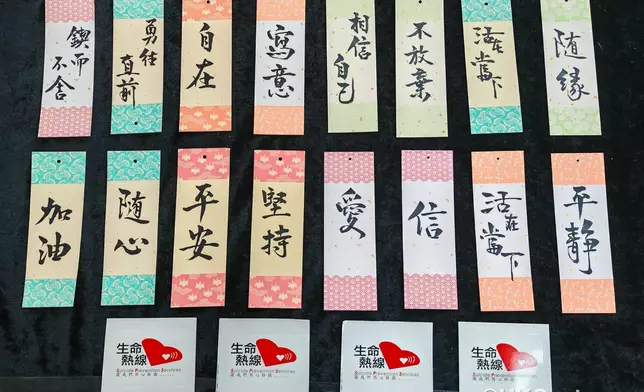 鍥而
不舍
勇往
直前
自在
寫意
相信
自己
不放棄
活在
當下
随緣
加油
随心
平安
堅持
愛
信
活在
當下
平静
生命
熱線
Suicide Prevention Services
生命
熱線
Suicide Prevention Services
生命
熱線
Suicide Prevention Services
生命
熱線
Suicide Prevention Services